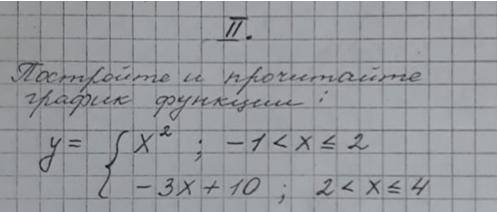 II.
Постройте и прочитайте
график функции:
y = { x² ; -1 < x ≤ 2
-3x + 10 ; 2 < x ≤ 4